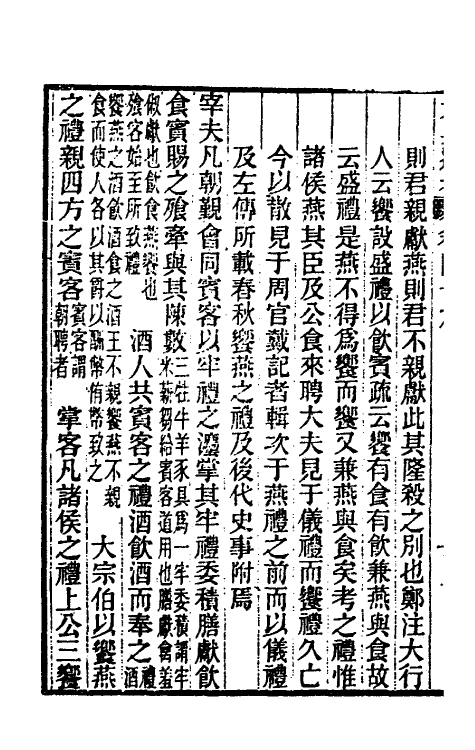 則君親獻燕則君不親獻此其隆殺之別也鄭注大行
人云饗設盛禮以飲賓疏云饗有食有飲兼燕與食故
云盛禮是燕不得爲饗而饗又兼燕與食矣考之禮惟
諸侯燕其臣及公食來聘大夫見于儀禮而饗禮久亡
今以散見于周官戴記者輯次于燕禮之前而以儀禮
及左傳所載春秋饗燕之禮及後代史事附焉
宰夫凡朝覲會同賓客以牢禮之灋掌其牢禮委積膳獻飲
食賓賜之飧牽與其陳數三牲牛羊豕具爲一牢委積謂牢米薪芻給賓客道用也膳獻禽羞
俶獻也飲食燕饗也飧客始至所致禮 酒人共賓客之禮酒飲酒而奉之禮酒
饗燕之酒飲酒食之酒王不親饗燕不親食而使人各以其爵以酬幣侑幣致之 大宗伯以饗燕
之禮親四方之賓客賓客謂朝聘者 掌客凡諸侯之禮上公三饗